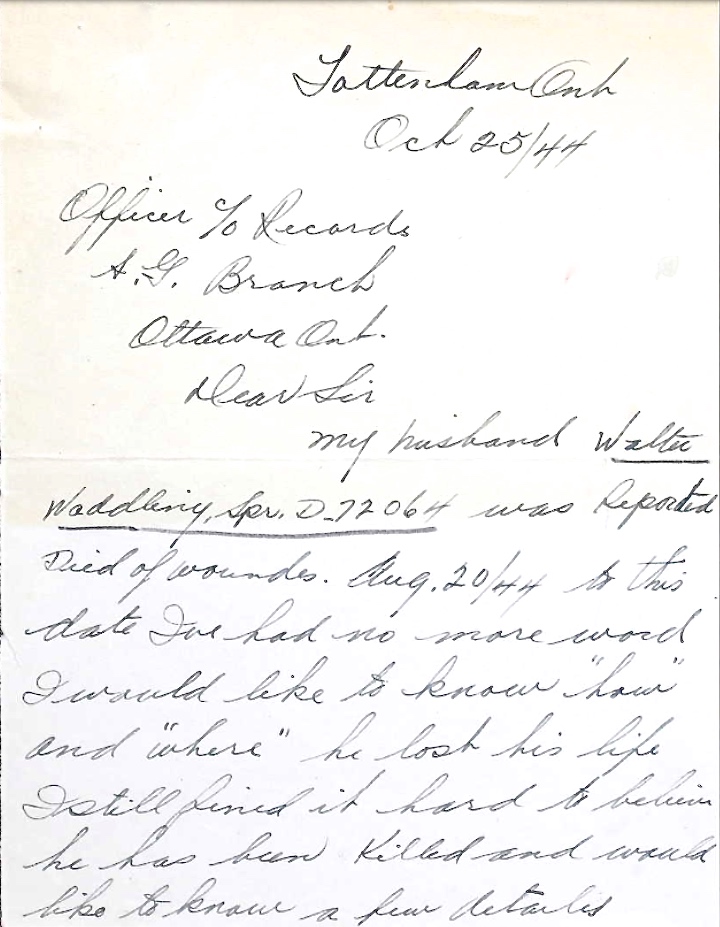 Tottenham Ont
Oct 25/44
Officer I/o Records
A.G. Branch
Ottawa Ont.
Dear Sir
my husband Walter
Waddling, Spr. D-72064 was Reported
Died of woundes. Aug. 20/44 to this
date I've had no more word
I would like to know "how"
and "where" he lost his life
I still fined it hard to believe
he has been Killed and would
like to know a few detailes